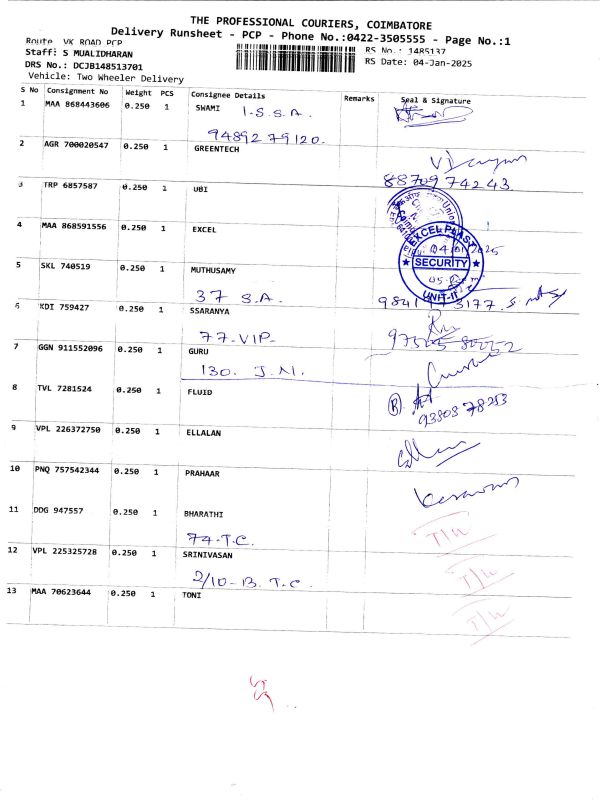 THE PROFESSIONAL COURIERS, COIMBATORE
Delivery Runsheet - PCP - Phone No.:0422-3505555 - Page No.:1
Route VK ROAD PCP
RS No.: 1485137
Staff: S MUALIDHARAN
RS Date: 04-Jan-2025
DRS No.: DCJB148513701
Vehicle: Two Wheeler Delivery
S No Consignment No Weight PCS Consignee Details Remarks Seal & Signature
1 MAA 868443606 0.250 1 SWAMI I.S.S.A.
94892 79120.
2 AGR 700020547 0.250 1 GREENTECH
88709 74243
3 TRP 6857587 0.250 1 UBI
4 MAA 868591556 0.250 1 EXCEL
EXCEL PLAST
04/01/2025
SECURITY
UNIT-II
5 SKL 740519 0.250 1 MUTHUSAMY
37 S.A.
6 KDI 759427 0.250 1 SSARANYA
77-VIP-
7 GGN 911552096 0.250 1 GURU
130. J.M.
8 TVL 7281524 0.250 1 FLUID
R
93803 78253
9 VPL 226372750 0.250 1 ELLALAN
10 PNQ 757542344 0.250 1 PRAHAAR
11 DDG 947557 0.250 1 BHARATHI
74-T.C.
T/W
12 VPL 225325728 0.250 1 SRINIVASAN
2/10-B. T.C.
T/W
13 MAA 70623644 0.250 1 TONI
T/W